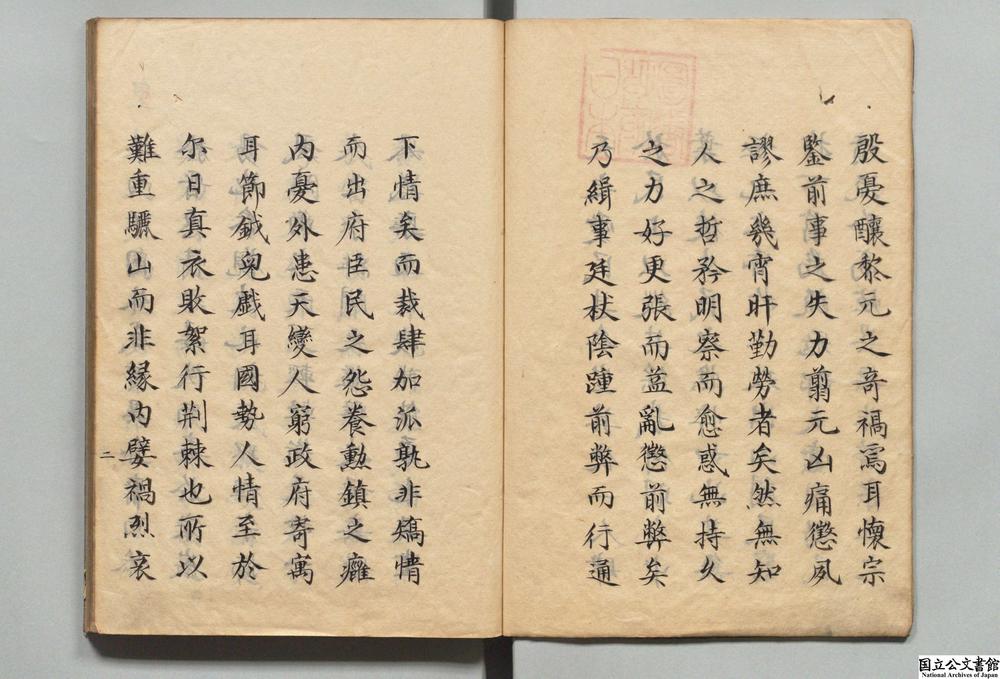 殷憂釀黎元之奇禍焉耳懷宗
鑒前事之失力翦元凶痛懲夙
謬庶幾宵旰勤勞者矣然無知
人之哲矜明察而愈惑無持久
之力好更張而益亂懲前弊矣
乃緝事廷杖陰踵前弊而行通
下情矣而裁肆加派孰非矯情
而出府臣民之怨養勳鎮之癰
内憂外患天變人窮政府寄寓
耳節鉞兒戯耳國勢人情至於
尓日真衣敗絮行荆棘也所以
難重驪山而非緣内嬖禍烈哀
二
国立公文書館
National Archives of Japan